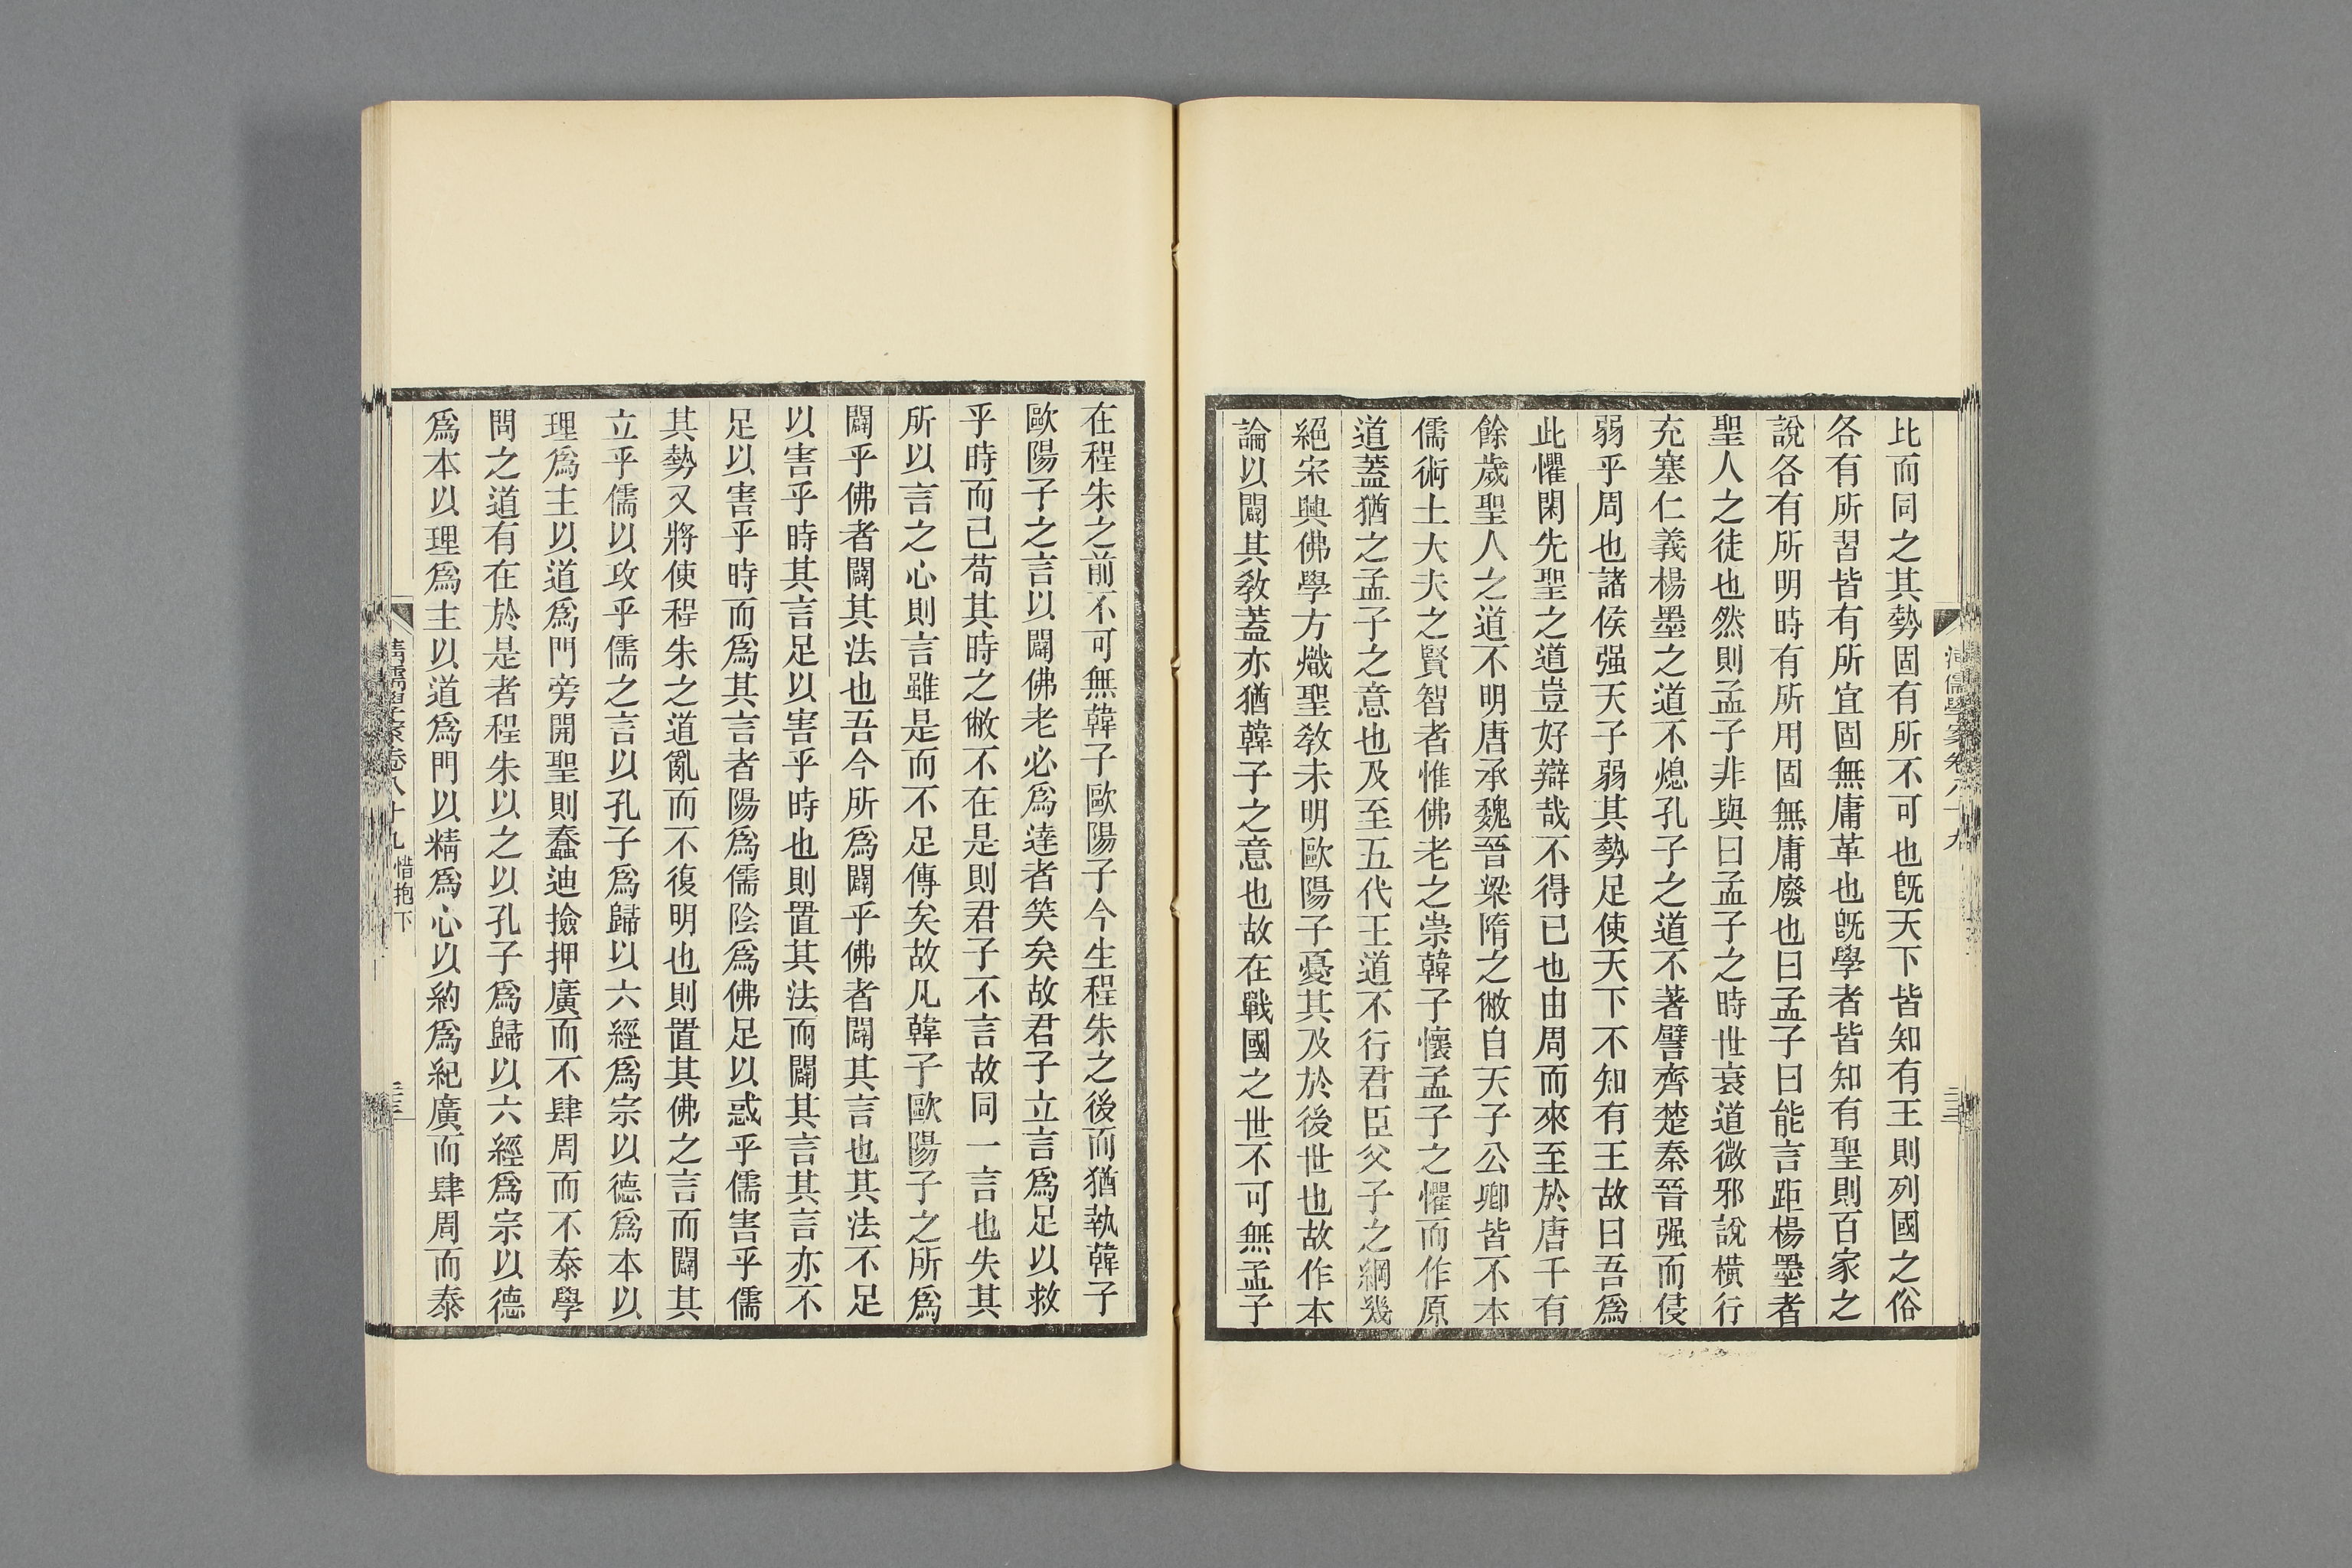 比而同之其勢固有所不可也旣天下皆知有王則列國之俗
各有所習皆有所宜固無庸革也旣學者皆知有聖則百家之
說各有所明時有所用固無庸廢也曰孟子曰能言距楊墨者
聖人之徒也然則孟子非與曰孟子之時世衰道微邪說橫行
充塞仁義楊墨之道不熄孔子之道不著譬齊楚秦晉强而侵
弱乎周也諸侯强天子弱其勢足使天下不知有王故曰吾爲
此懼閑先聖之道豈好辯哉不得已也由周而來至於唐千有
餘歲聖人之道不明唐承魏晉梁隋之敝自天子公卿皆不本
儒術士大夫之賢智者惟佛老之崇韓子懷孟子之懼而作原
道蓋猶之孟子之意也及至五代王道不行君臣父子之綱幾
絕宋興佛學方熾聖教未明歐陽子憂其及於後世也故作本
論以闢其敎蓋亦猶韓子之意也故在戰國之世不可無孟子
在程朱之前不可無韓子歐陽子今生程朱之後而猶執韓子
歐陽子之言以闢佛老必爲達者笑矣故君子立言爲足以救
乎時而已苟其時之敝不在是則君子不言故同一言也失其
所以言之心則言雖是而不足傳矣故凡韓子歐陽子之所爲
闢乎佛者闢其法也吾今所爲闢乎佛者闢其言也其法不足
以害乎時其言足以害乎時也則置其法而闢其言其言亦不
足以害乎時而爲其言者陽爲儒陰爲佛足以惑乎儒害乎儒
其勢又將使程朱之道亂而不復明也則置其佛之言而闢其
立乎儒以攻乎儒之言以孔子爲歸以六經爲宗以德爲本以
理爲主以道爲門旁開聖則蠢迪撿押廣而不肆周而不泰學
問之道有在於是者程朱以之以孔子爲歸以六經爲宗以德
爲本以理爲主以道爲門以精爲心以約爲紀廣而肆周而泰
清儒學案卷八十九 惜抱下